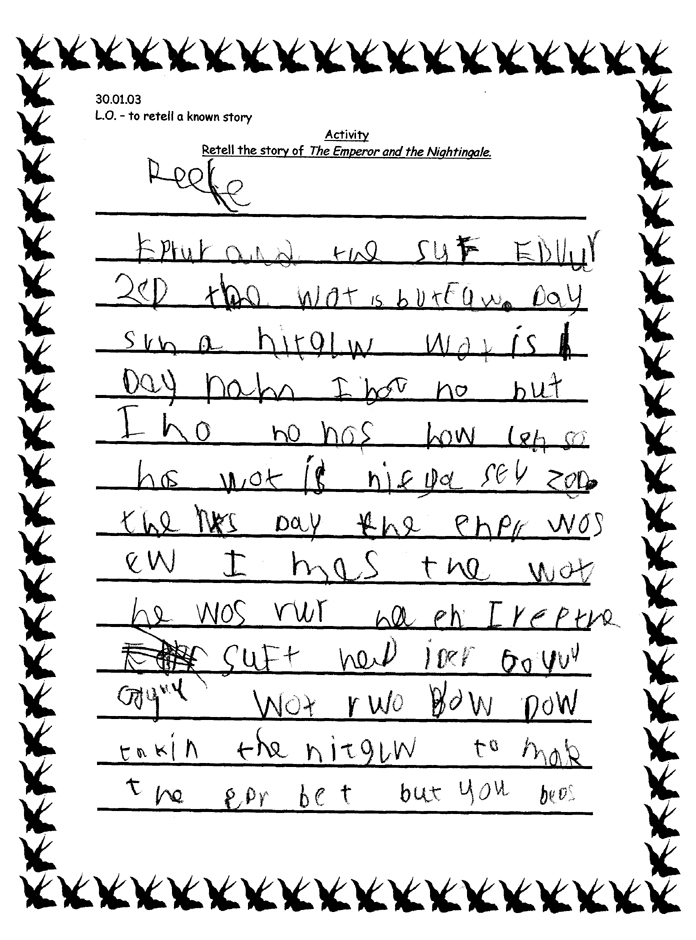 30.01.03
L.O. – to retell a known story
Activity
Retell the story of The Emperor and the Nightingale.
Reeke
Eprur and the SUF EDVur
the wot is but Day
sun a hitgLw wot is
Day nahn I hot no but
I ho no hos how leh so
hos wot is SEY
the Day the enpr wos
ew I mas the wot
he wos rur he eh I reethe
SUFt herd
wot rwo Bow Dow
takin the nitgLw to mak
the epr bet but you beos